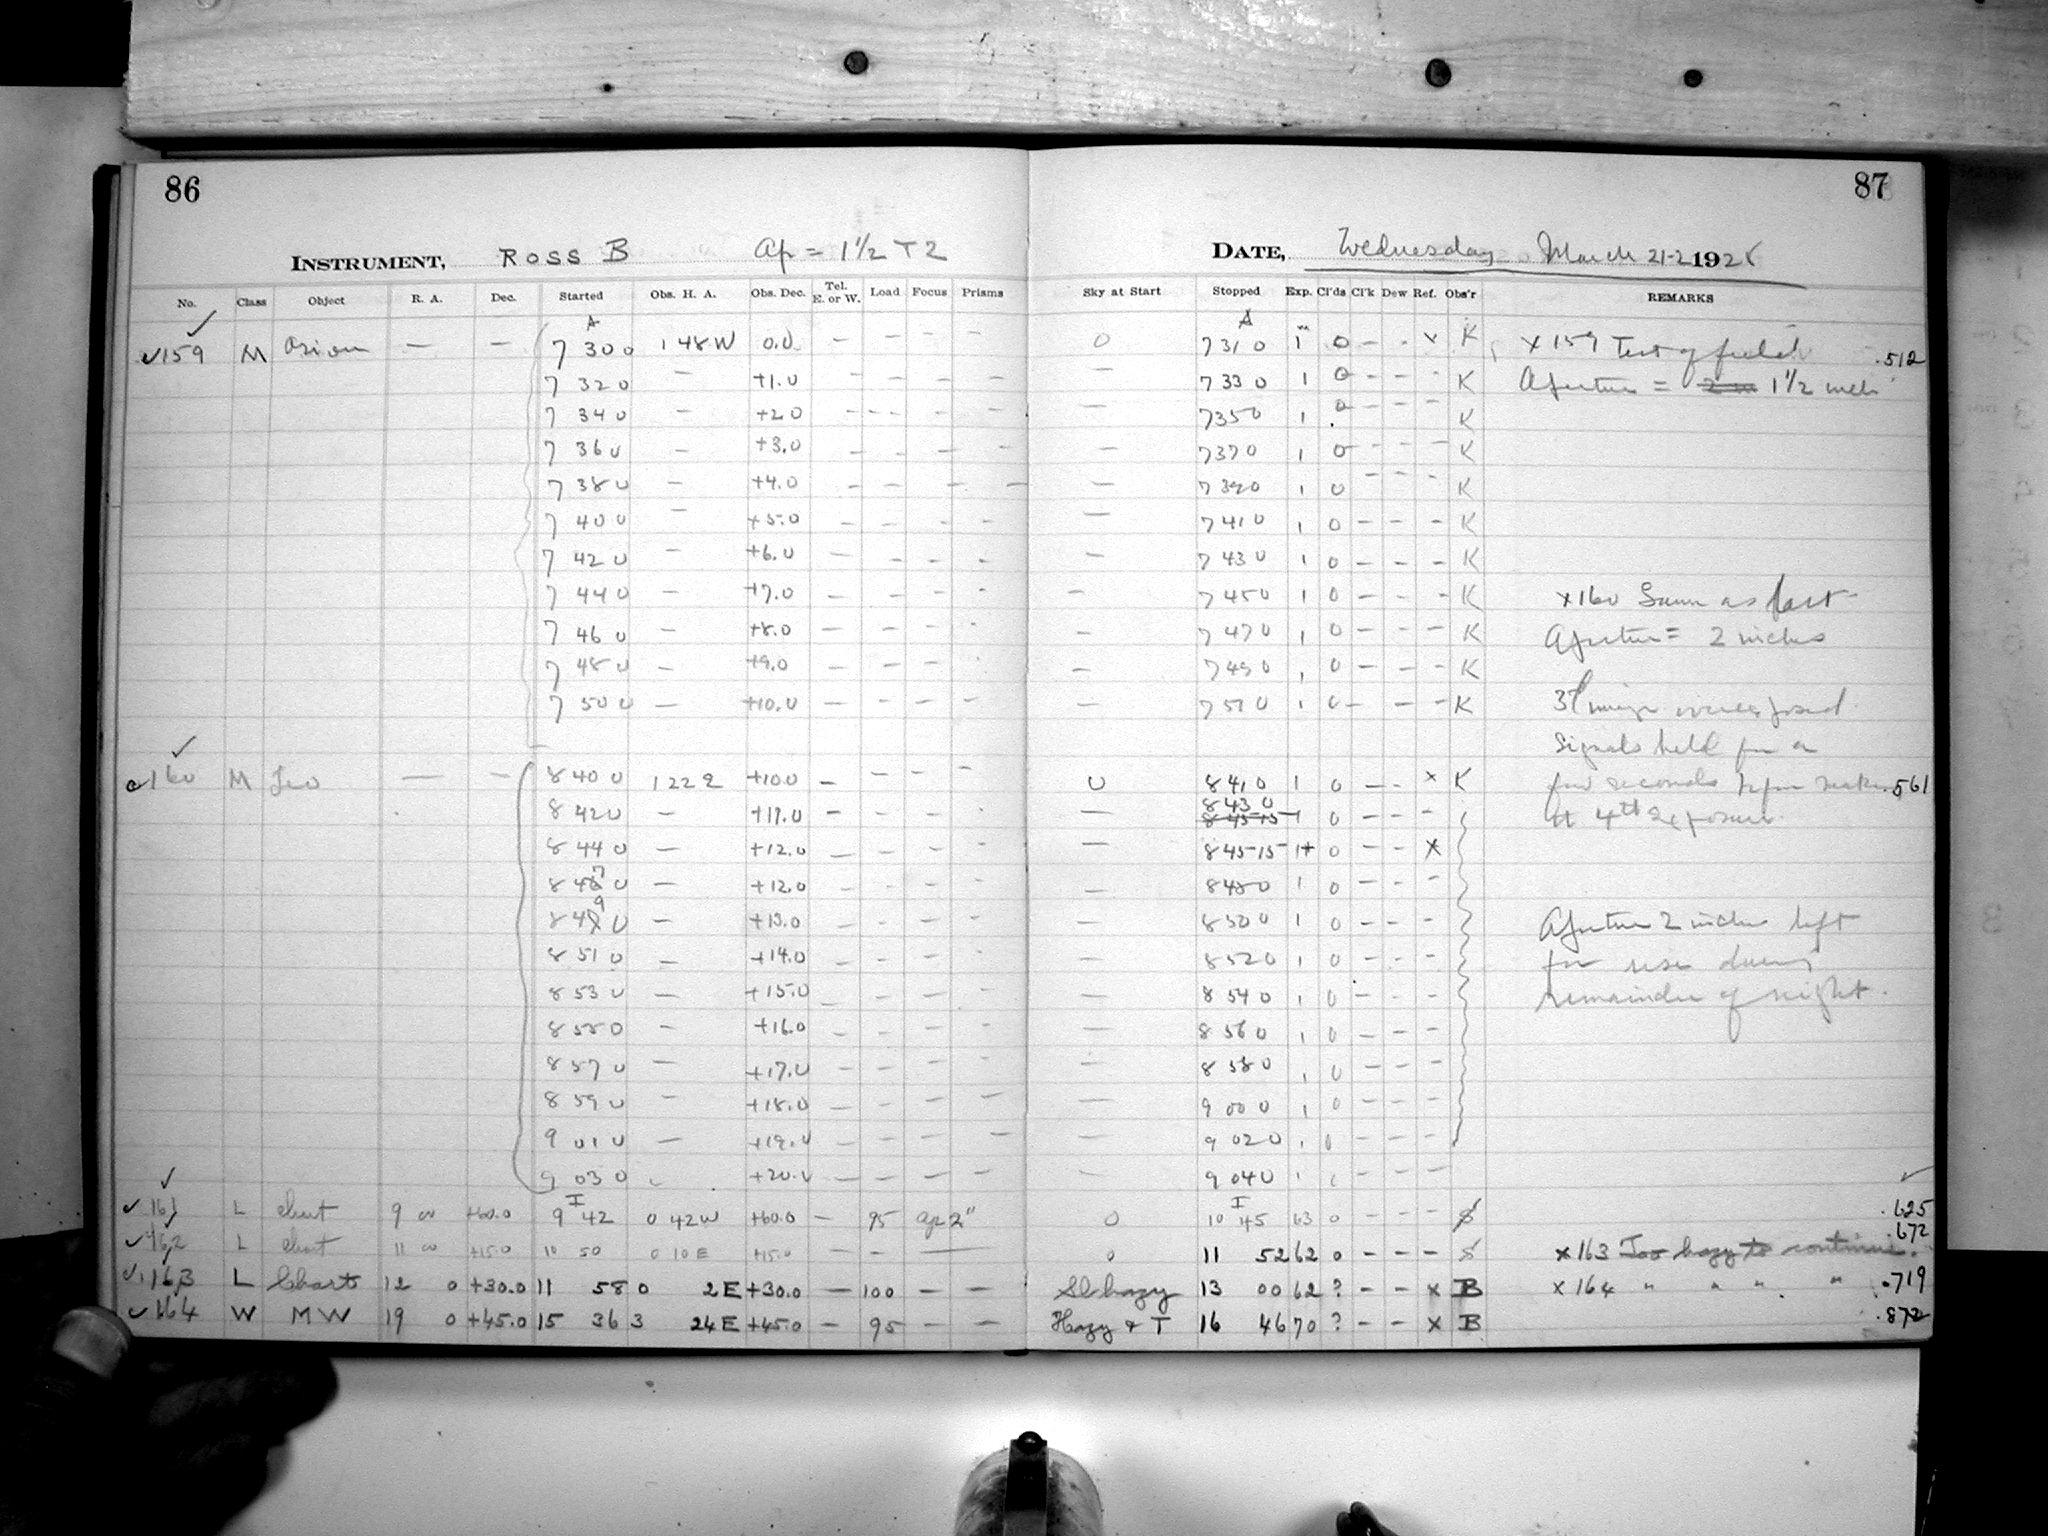 86
87
INSTRUMENT, ROSS B Ap = 1½ T 2
DATE, Wednesday March 21-2 1928
No. Class Object R. A. Dec. Started Obs. H. A. Obs. Dec. Tel. E. or W. Load Focus Prisms Sky at Start Stopped Exp. Cl'ds Cl'k Dew Ref. Obs'r REMARKS
A A
✓159 M Orion — — 7 30 0 1 48 W 0.0 — — — — 0 7 31 0 1m 0 — - x K x 159 Test of field .512
7 32 0 — +1.0 — — — — — 7 33 0 1 0 — — — K Aperture = 1½ inch
7 34 0 — +2.0 — — — — — 7 35 0 1 0 — — — K
7 36 0 — +3.0 — — — — — 7 37 0 1 0 — — — K
7 38 0 — +4.0 — — — — — 7 39 0 1 0 — — — K
7 40 0 — +5.0 — — — — — 7 41 0 1 0 — — — K
7 42 0 — +6.0 — — — — — 7 43 0 1 0 — — — K
7 44 0 — +7.0 — — — — — 7 45 0 1 0 — — — K x160 Same as last
7 46 0 — +8.0 — — — — — 7 47 0 1 0 — — — K Aperture = 2 inches
7 48 0 — +9.0 — — — — — 7 49 0 1 0 — — — K
7 50 0 — +10.0 — — — — — 7 51 0 1 0 — — — K
Signals held for a
160 M Leo — — 8 40 0 1 22 +10.0 — — — — 0 8 41 0 1 0 — - x K few seconds .561
8 42 0 — +11.0 — — — — — 8 43 0 1 0 — — — at 4th exposure
8 44 0 — +12.0 — — — — — 8 45 15 1+ 0 — — x
8 47 0 — +12.0 — — — — — 8 48 0 1 0 — — —
8 49 0 — +13.0 — — — — — 8 50 0 1 0 — — — Aperture 2 inches left
8 51 0 — +14.0 — — — — — 8 52 0 1 0 — — — for use during
8 53 0 — +15.0 — — — — — 8 54 0 1 0 — — — remainder of night.
8 55 0 — +16.0 — — — — — 8 56 0 1 0 — — —
8 57 0 — +17.0 — — — — — 8 58 0 1 0 — — —
8 59 0 — +18.0 — — — — — 9 00 0 1 0 — — —
9 01 0 — +19.0 — — — — — 9 02 0 1 0 — — —
9 03 0 +20.0 — — — — — 9 04 0 1 — — —
I I
✓161 L chart 9 00 +60.0 9 42 0 42 W +60.0 — 95 ap 2" 0 10 45 63 0 — — — S .625
✓162 L chart 11 00 +15.0 10 50 0 10 E +15.0 — — — 0 11 52 62 0 — — — S .672
✓163 L Charts 12 0 +30.0 11 58 0 2 E +30.0 — 100 — — Sl hazy 13 00 62 ? — — x B x 163 Too hazy to continue. .719
✓164 W MW 19 0 +45.0 15 36 3 24 E +45.0 — 95 — — Hazy & T 16 46 70 ? — — x B x 164 " " " " .872